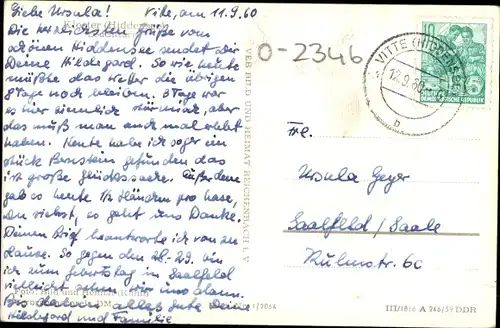 Liebe Ursula! Vitte, am 11.9.60
Die herzlichsten Grüße vom
schönen Hiddensee sendet dir
Deine Hildegard. So wie heute
müßte das Wetter die übrigen
Tage noch bleiben. 3 Tage war
es hier ziemlich stürmisch, aber
das muß man auch mal erlebt
haben. Heute habe ich sogar ein
Stück Bernstein gefunden das
ist große Glückssache. Außerdem
gab es heute 1/2 Händchen pro Nase,
Du siehst, es geht uns Danke.
Deinen Brief beantworte ich von zu
Hause. So gegen den 28.-29. bin
ich zum Geburtstag in Saalfeld
vielleicht sehen wir uns dann.
Bis dahin alles Gute Deine
Hildegard und Familie
Kloster (Hiddensee)
VEB BILD UND HEIMAT REICHENBACH i. V
Foto: Bild und Heimat
1/2064
O-2346
VITTE (HIDDENSEE)
12.9.60
b
10
DEUTSCHE
DEMOKRATISCHE REPUBLIK
Frl.
Ursula Geyer
Saalfeld / Saale
Kulmstr. 6c
III/1816 A 246/59 DDR